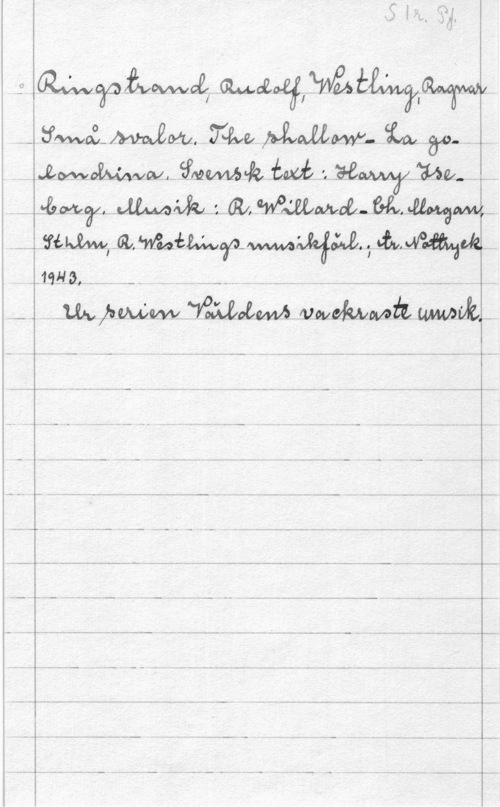 S 1r. Pf.
Ringstrand, Rudolf, Westling, Ragnar
Små svalor. The shallow- La go-
londrina. Svensk text : Harry Ise-
borg. Musik : R. Willard - Ch. Morgan,
Sthlm, R. Westlings musikförl.; tr. Nottryck
1943.
Ur serien Världens vackraste musik.